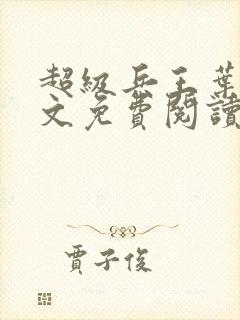 超級兵王葉
文免費閱讀
賈子俊